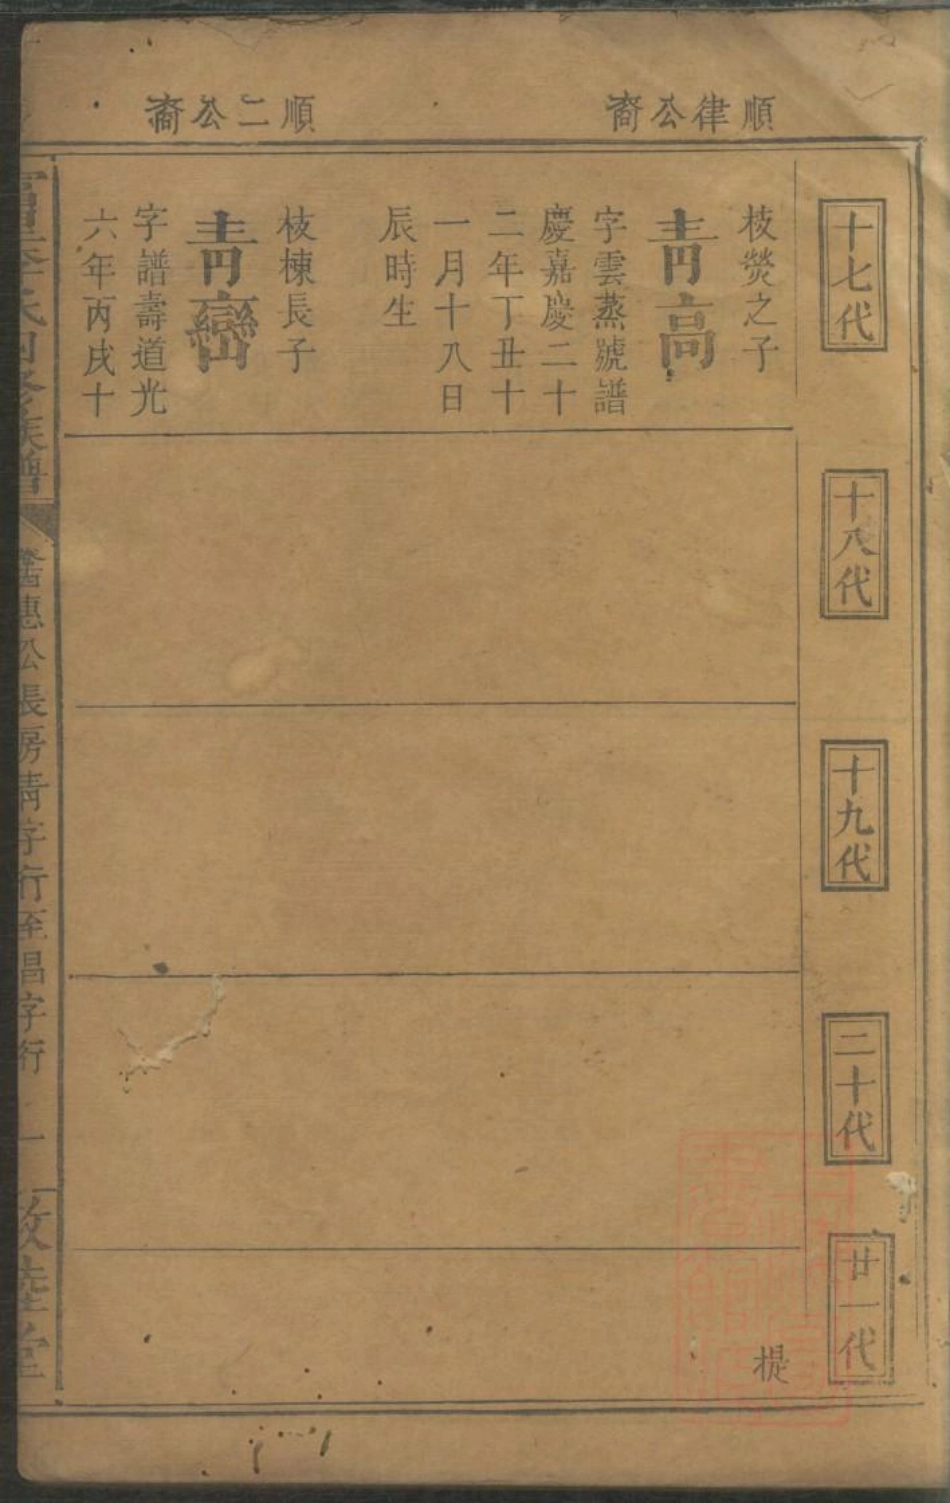 順律公裔
順二公裔
十七代
十八代
十九代
二十代
廿一代
枝熒之子
青高
字雲蒸號譜
慶嘉慶二十
二年丁丑十
一月十八日
辰時生
枝棟長子
青巒
字譜壽道光
六年丙戌十
提
氏四修族譜
惠公長房青字行至昌字行
一
敦睦堂